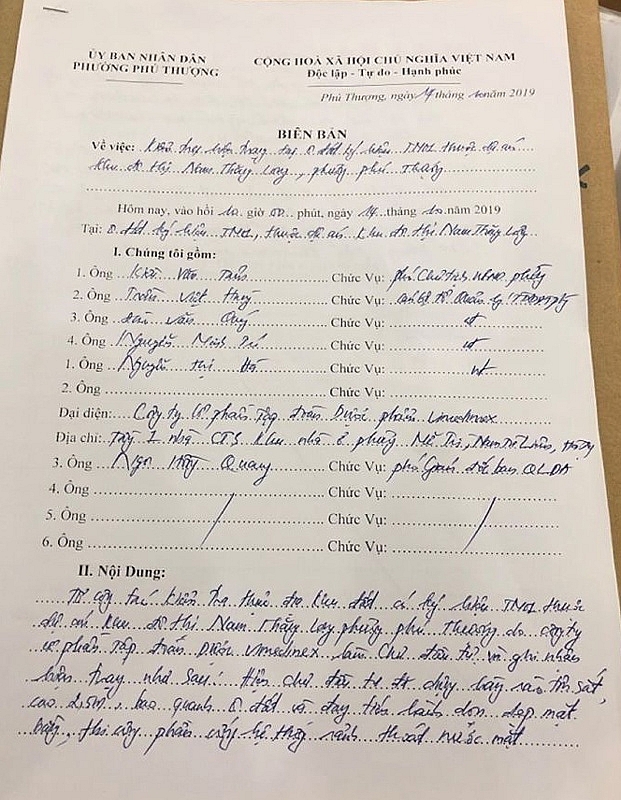 ỦY BAN NHÂN DÂN
PHƯỜNG PHÚ THƯỢNG
CỘNG HOÀ XÃ HỘI CHỦ NGHĨA VIỆT NAM
Độc lập - Tự do - Hạnh phúc
Phú Thượng, ngày 14 tháng 10 năm 2019
BIÊN BẢN
Về việc: Kiểm tra hiện trạng tại ô đất ký hiệu TM01 thuộc dự án
khu đô thị Nam Thăng Long, phường phú Thượng
Hôm nay, vào hồi 10 giờ 00 phút, ngày 14 tháng 10 năm 2019
Tại: ô đất ký hiệu TM01, thuộc dự án Khu đô thị Nam Thăng Long
I. Chúng tôi gồm:
1. Ông Văn Chức Vụ: phó Chủ tịch UBND phường
2. Ông Trần Việt Chức Vụ: Cán bộ tổ Quản lý
3. Ông Văn Quý Chức Vụ: nt
4. Ông Nguyễn Minh Chức Vụ: nt
1. Ông Nguyễn thị Hà Chức Vụ: nt
2. Ông Chức Vụ:
Đại diện: Công ty cổ phần Tập đoàn Dược phẩm Vimedimex
Địa chỉ: tầng 1 nhà CT3 Khu nhà ở phường Mễ Trì, Nam Từ Liêm, Hà Nội
3. Ông Ngô Quang Chức Vụ: phó Giám đốc ban QLDA
4. Ông Chức Vụ:
5. Ông Chức Vụ:
6. Ông Chức Vụ:
II. Nội Dung:
Tổ công tác Kiểm tra thực địa khu đất có ký hiệu TM01 thuộc
dự án khu đô thị Nam Thăng Long phường phú Thượng do công ty
cổ phần tập đoàn Dược Vimedimex làm Chủ đầu tư và ghi nhận
hiện trạng như sau: Hiện chủ đầu tư đã hàng rào tôn sắt,
cao 2,5m, bao quanh ô đất và đang tiến hành dọn dẹp mặt
bằng, thi công phần hệ thống rãnh thoát nước mặt